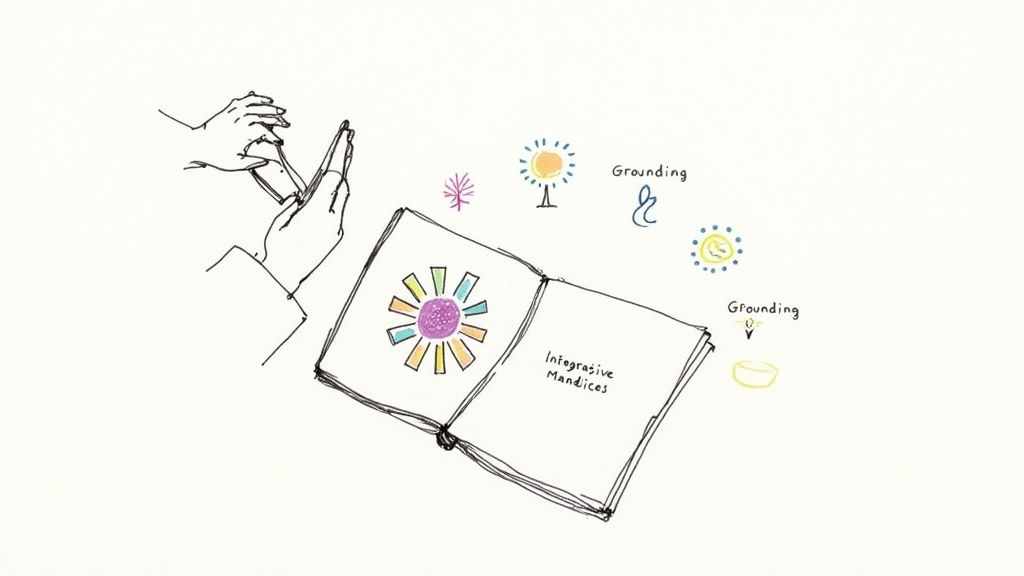 Grounding
Grounding
Integrasive
Mandices